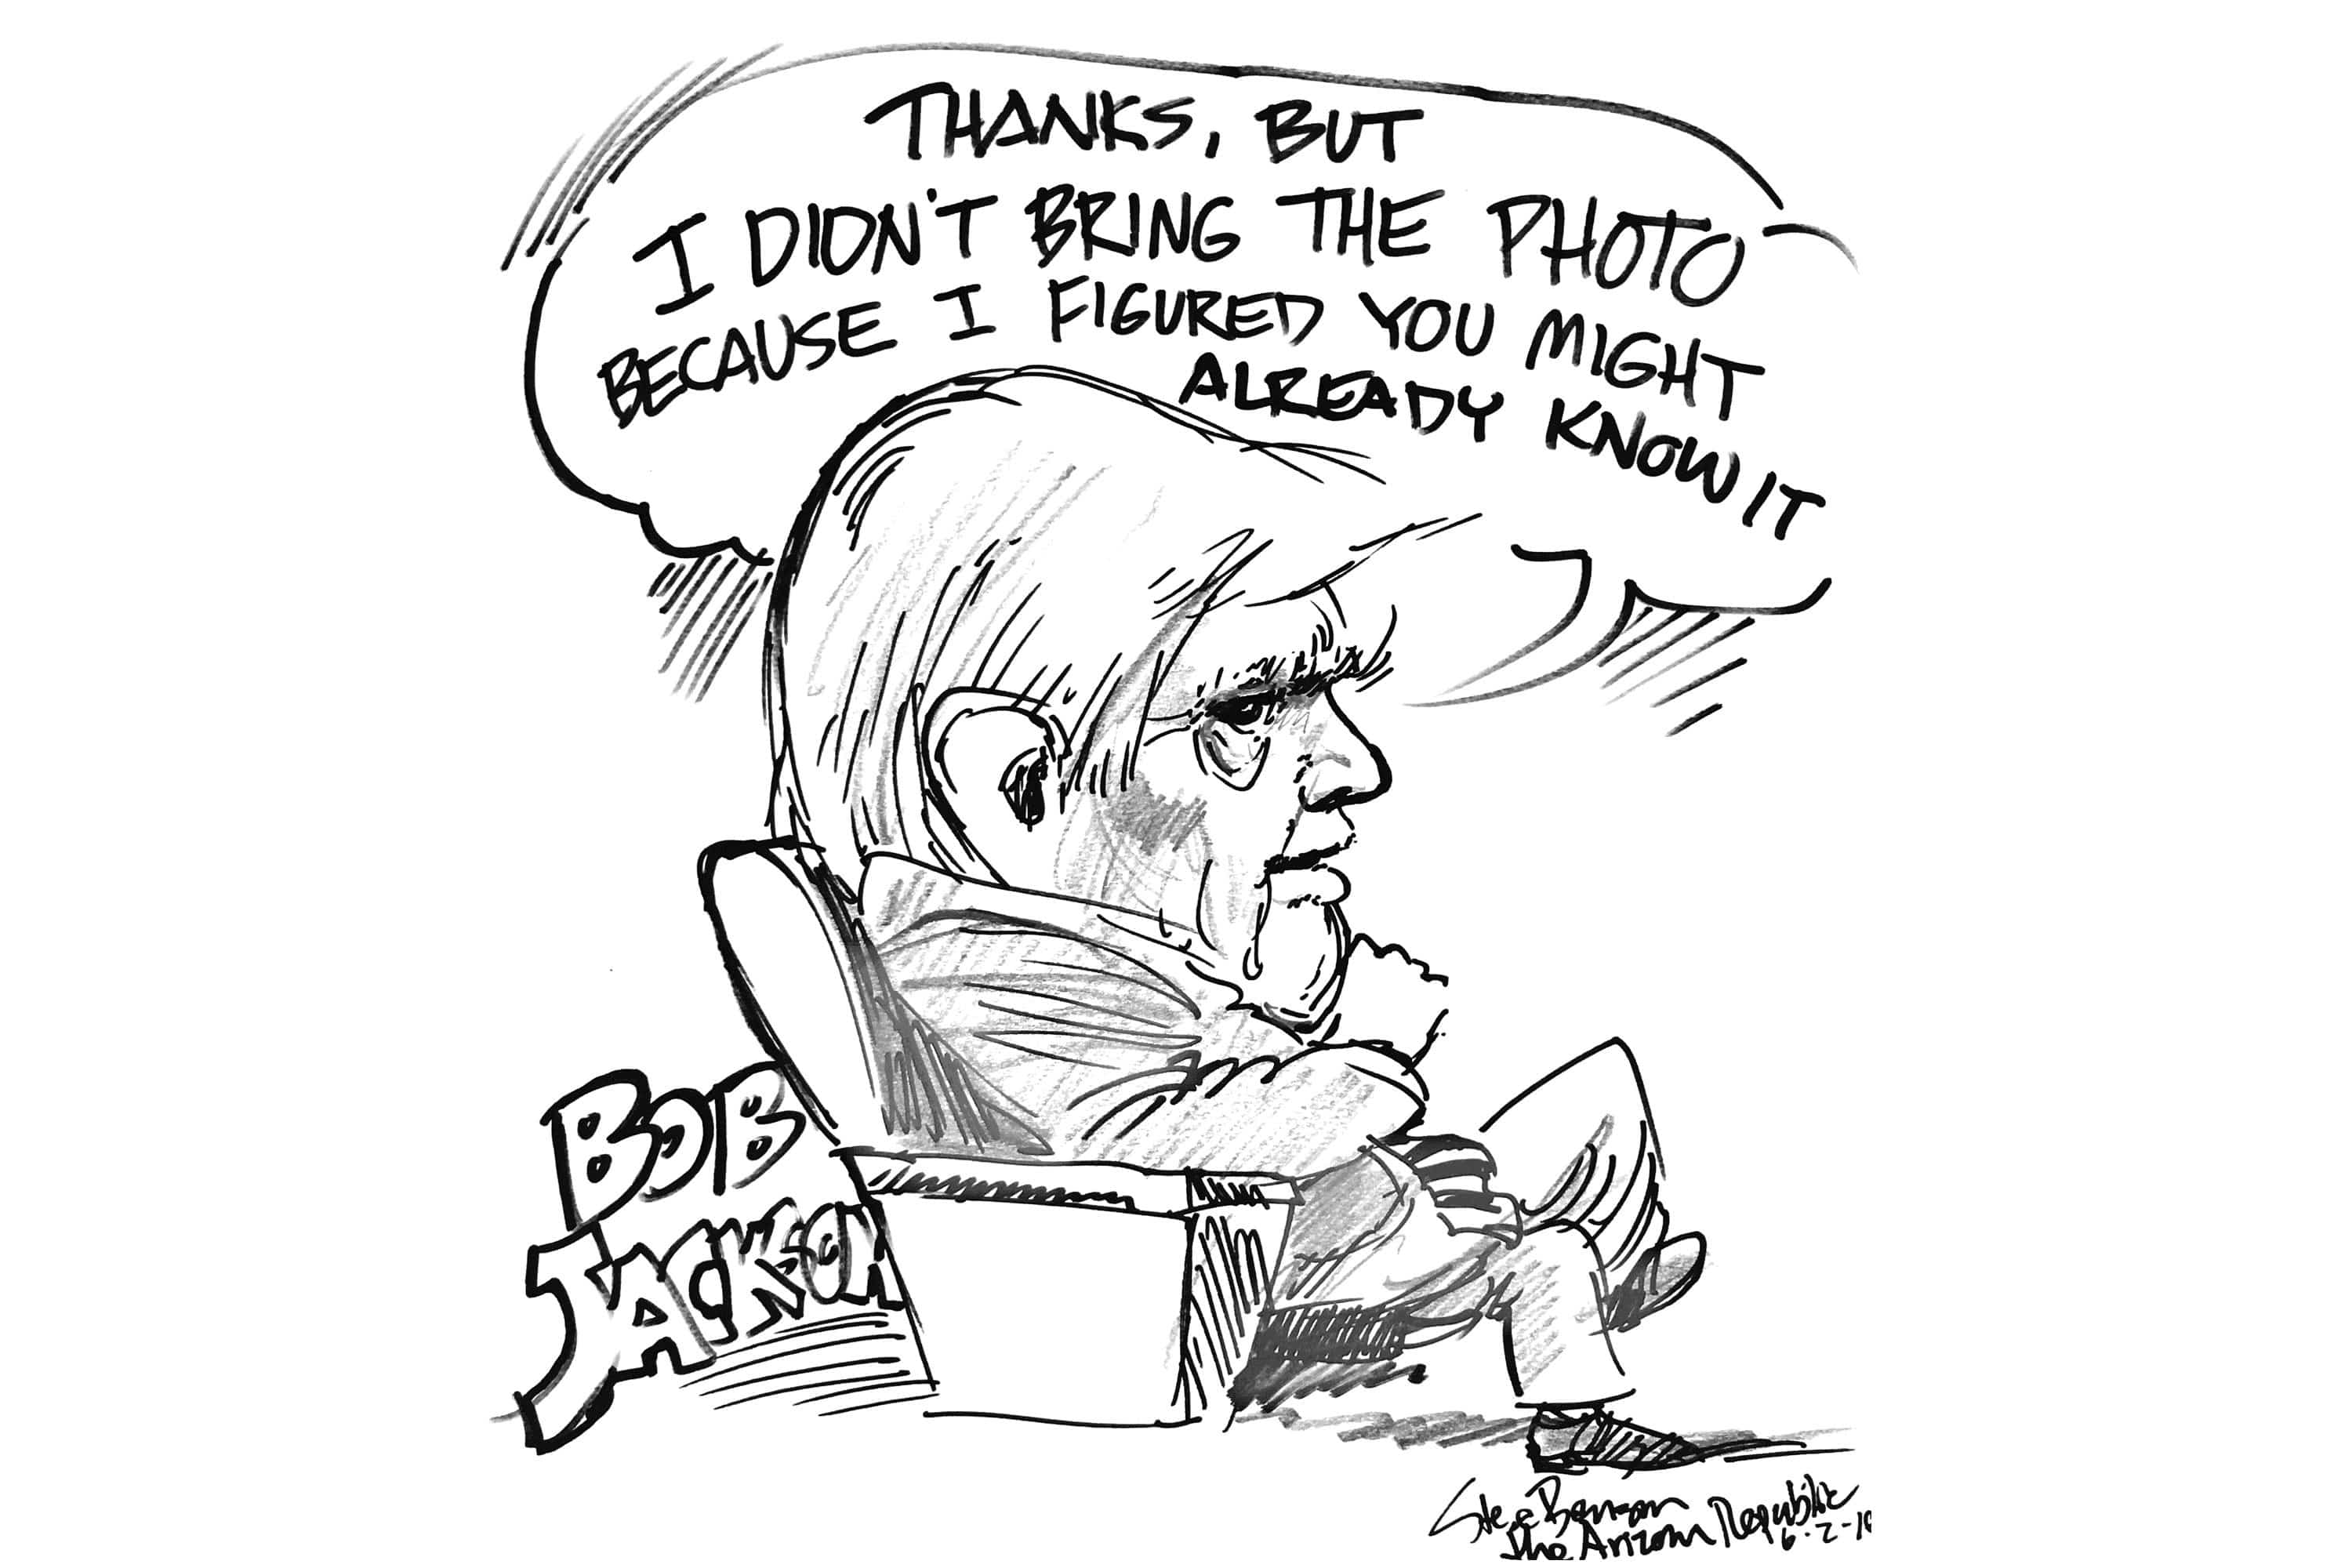 THANKS, BUT
I DIDN'T BRING THE PHOTO
BECAUSE I FIGURED YOU MIGHT
ALREADY KNOW IT
BOB
JACKSON
Steve Benson
The Arizona Republic
6-2-1